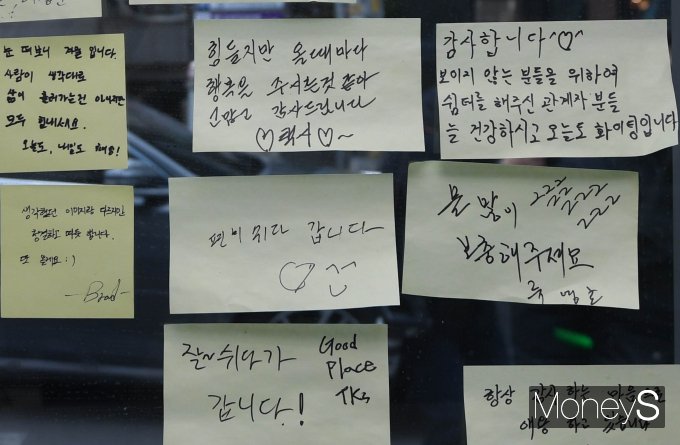 눈 떠보니 겨울 입니다.
사람이 생각대로
삶이 흘러가는건 아니지만
모두 힘내세요.
오늘도, 내일도 해요!
힘들지만 올때마다
행복을 주시는것 같아
감사드립니다
♡택시♡~
감사합니다^♡^
보이지 않는 분들을 위하여
쉼터를 해주신 관계자 분들
늘 건강하시고 오늘도 화이팅입니다
생각했던 이미지랑 다르지만
따뜻 합니다.
또 올게요 :)
-Brad-
편이 쉬다 갑니다
물 많이
보충해주세요
잘~쉬다가
갑니다.!
Good
Place
TKs
항상 감사 하는 마음으로
이용 하고
MoneyS